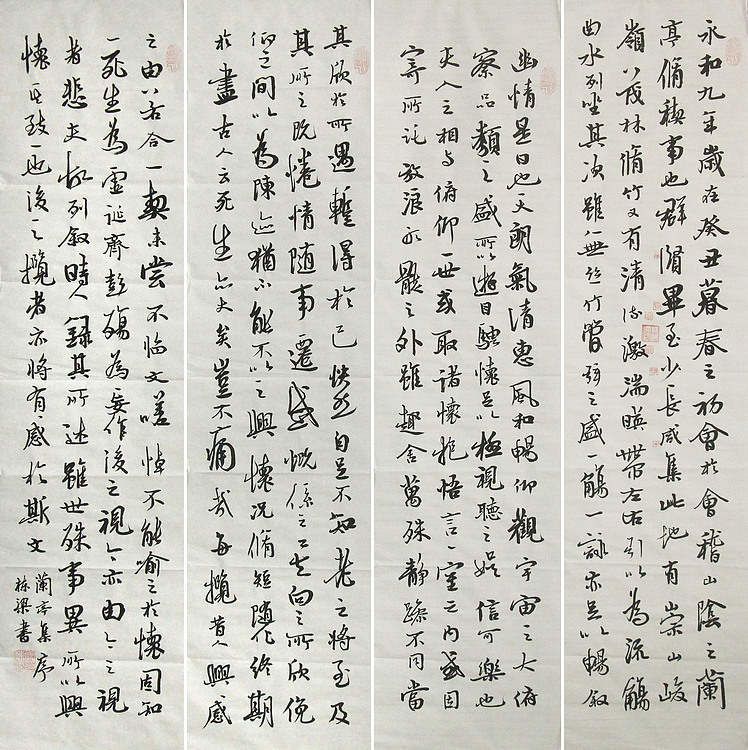 永和九年歲在癸丑暮春之初會於會稽山陰之蘭
亭脩稧事也群賢畢至少長咸集此地有崇山峻
嶺茂林脩竹又有清流激湍暎帶左右引以為流觴
曲水列坐其次雖無絲竹管弦之盛一觴一詠亦足以暢叙
幽情是日也天朗氣清惠風和暢仰觀宇宙之大俯
察品類之盛所以遊目騁懷足以極視聽之娛信可樂也
夫人之相與俯仰一世或取諸懷抱悟言一室之內或因
寄所託放浪形骸之外雖趣舍萬殊靜躁不同當
其欣於所遇暫得於己怏然自足不知老之將至及
其所之既惓情隨事遷感慨係之矣向之所欣俛
仰之間以為陳迹猶不能不以之興懷況脩短隨化終期
於盡古人云死生亦大矣豈不痛哉每攬昔人興感
之由若合一契未嘗不臨文嗟悼不能喻之於懷固知
一死生為虛誕齊彭殤為妄作後之視今亦由今之視
昔悲夫故列叙時人録其所述雖世殊事異所以興
懷其致一也後之攬者亦將有感於斯文
蘭亭集序
栋梁書